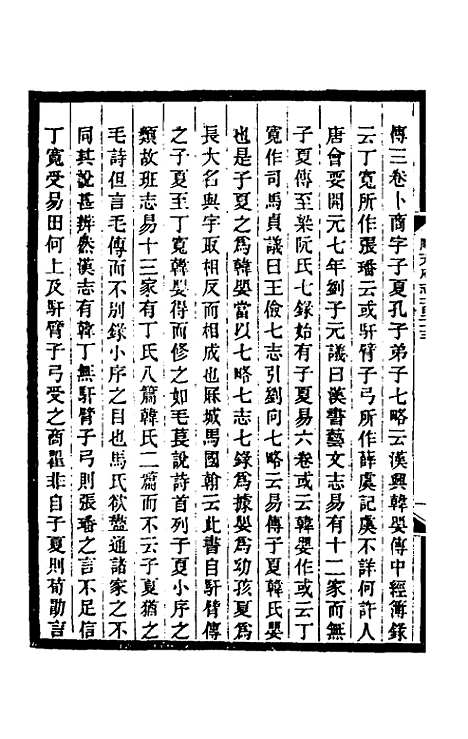 傳三卷卜商字子夏孔子弟子七略云漢興韓嬰傳中經簿錄
云丁寬所作張璠云或馯臂子弓所作薛虞記虞不詳何許人
唐會要開元七年劉子元議曰漢書藝文志易有十二家而無
子夏傳至梁阮氏七錄始有子夏易六卷或云韓嬰作或云丁
寬作司馬貞議曰王儉七志引劉向七略云易傳子夏韓氏嬰
也是子夏之爲韓嬰當以七略七志七錄爲據嬰爲幼孩夏爲
長大名與字取相反而相成也厯城馬國翰云此書自馯臂傳
之子夏至丁寬韓嬰得而修之如毛萇說詩首列子夏小序之
類故班志易十三家有丁氏八篇韓氏二篇而不云子夏猶之
毛詩但言毛傳而不別錄小序之目也馬氏欲盡通諸家之不
同其說甚辨然漢志有韓丁無馯臂子弓則張璠之言不足信
丁寬受易田何上及馯臂子弓受之商瞿非自子夏則荀勖言